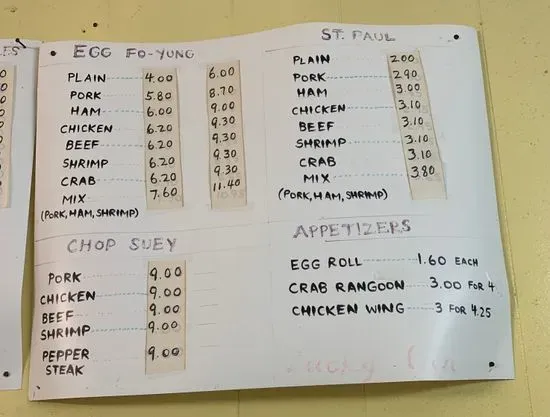 EGG FO-YUNG
PLAIN 4.00 6.00
PORK 5.80 8.70
HAM 6.00 9.00
CHICKEN 6.20 9.30
BEEF 6.20 9.30
SHRIMP 6.20 9.30
CRAB 6.20 9.30
MIX 7.60 11.40
(PORK, HAM, SHRIMP)
CHOP SUEY
PORK 9.00
CHICKEN 9.00
BEEF 9.00
SHRIMP 9.00
PEPPER
STEAK 9.00
ST. PAUL
PLAIN 2.00
PORK 2.90
HAM 3.00
CHICKEN 3.10
BEEF 3.10
SHRIMP 3.10
CRAB 3.10
MIX 3.80
(PORK, HAM, SHRIMP)
APPETIZERS
EGG ROLL 1.60 EACH
CRAB RANGOON 3.00 FOR 4
CHICKEN WING 3 FOR 4.25